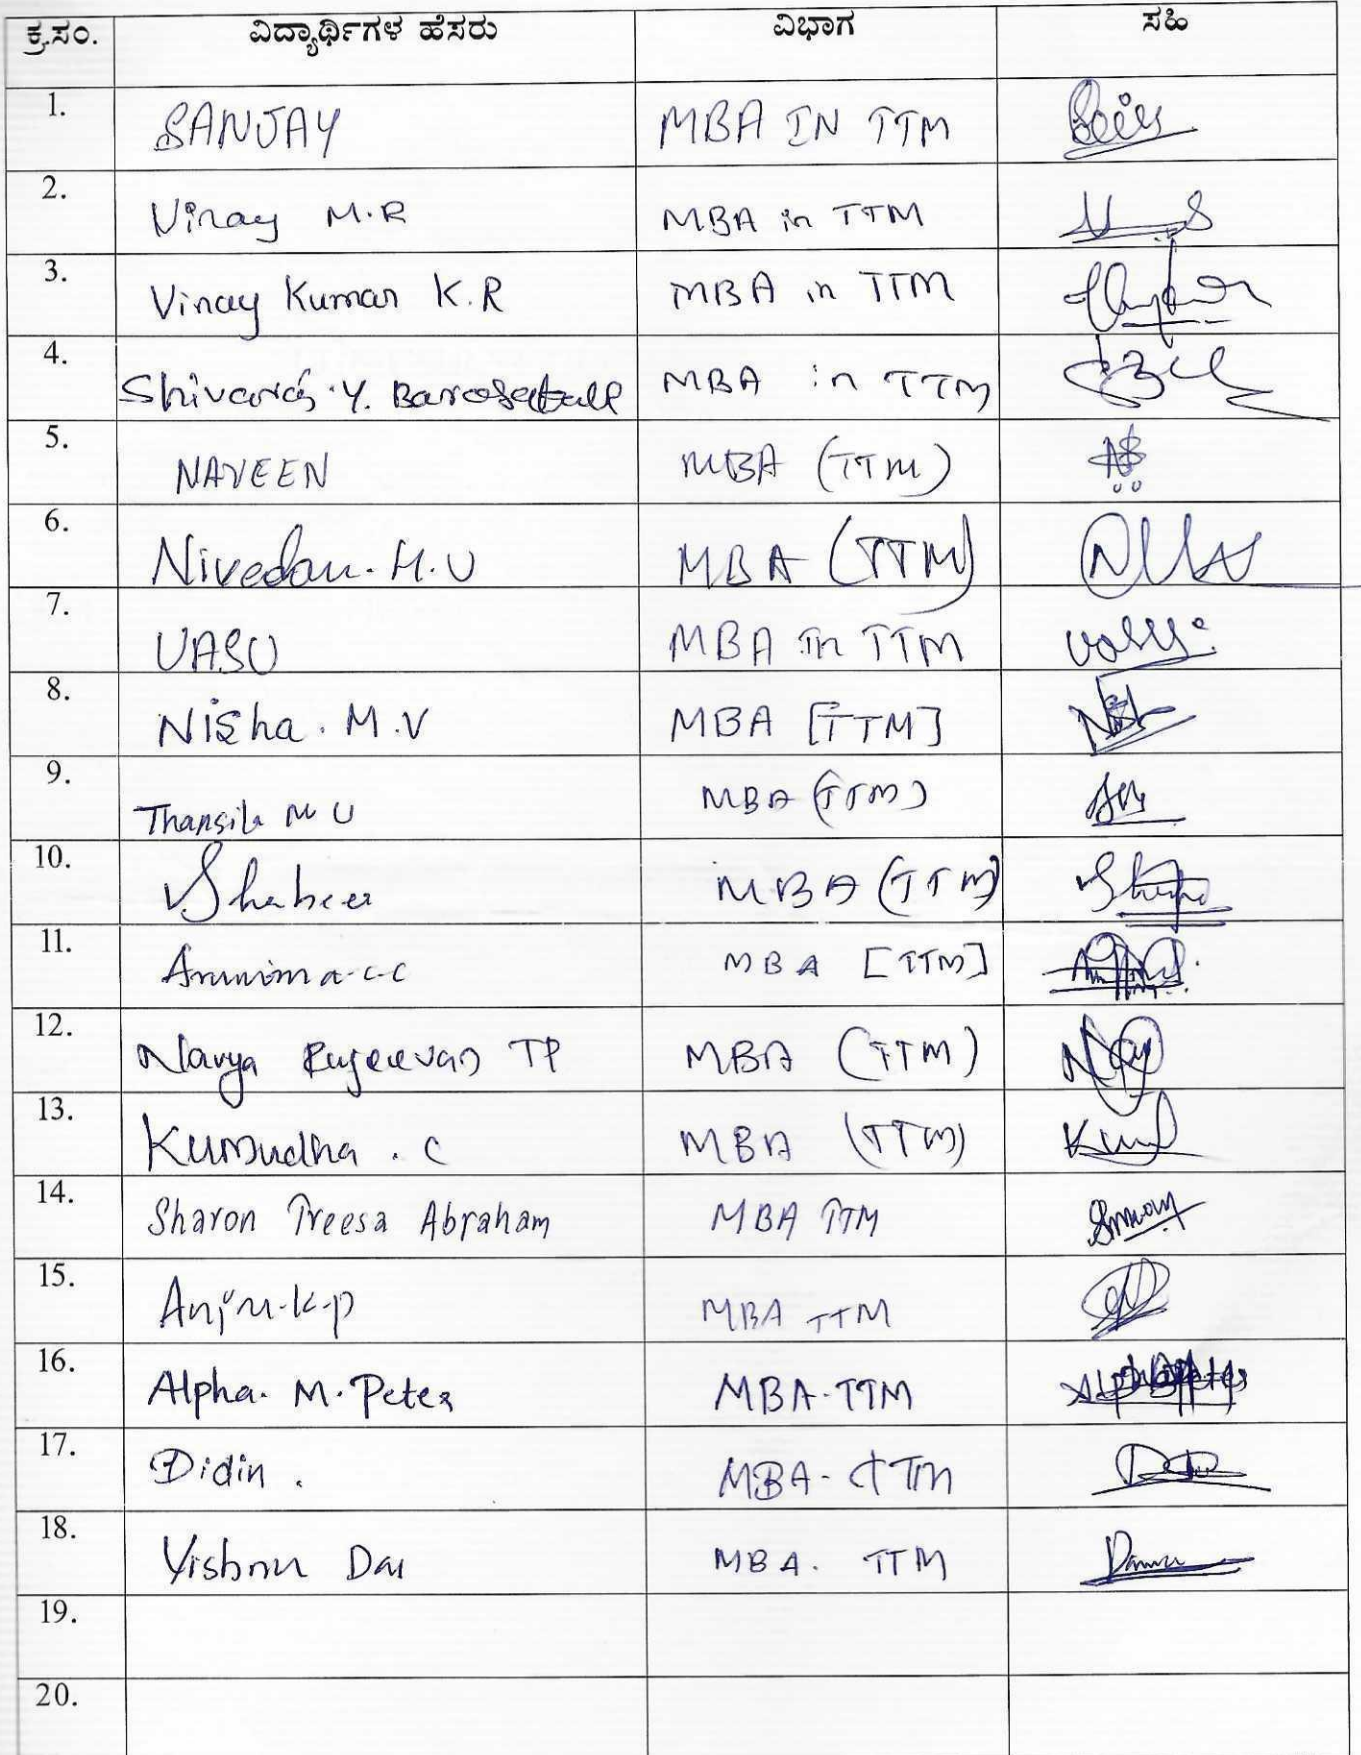 ಕ್ರ.ಸಂ. ವಿದ್ಯಾರ್ಥಿಗಳ ಹೆಸರು ವಿಭಾಗ ಸಹಿ
1. SANJAY MBA IN TTM
2. Vinay M.R MBA in TTM
3. Vinay Kumar K.R MBA in TTM
4. Y. MBA in TTM
5. NAVEEN MBA (TTM)
6. Nivedan. H.U MBA (TTM)
7. VASU MBA in TTM
8. Nisha. M.V MBA [TTM]
9. Thansila M U MBA (TTM)
10. Shabeer MBA (TTM)
11. Arunima.c.c MBA [TTM]
12. Navya TP MBA (TTM)
13. Kumudha . C MBA (TTM)
14. Sharon Treesa Abraham MBA TTM
15. Anju.k.p MBA TTM
16. Alpha. M. Peter MBA-TTM
17. Didin . MBA- TTM
18. Vishnu Das MBA. TTM
19.
20.